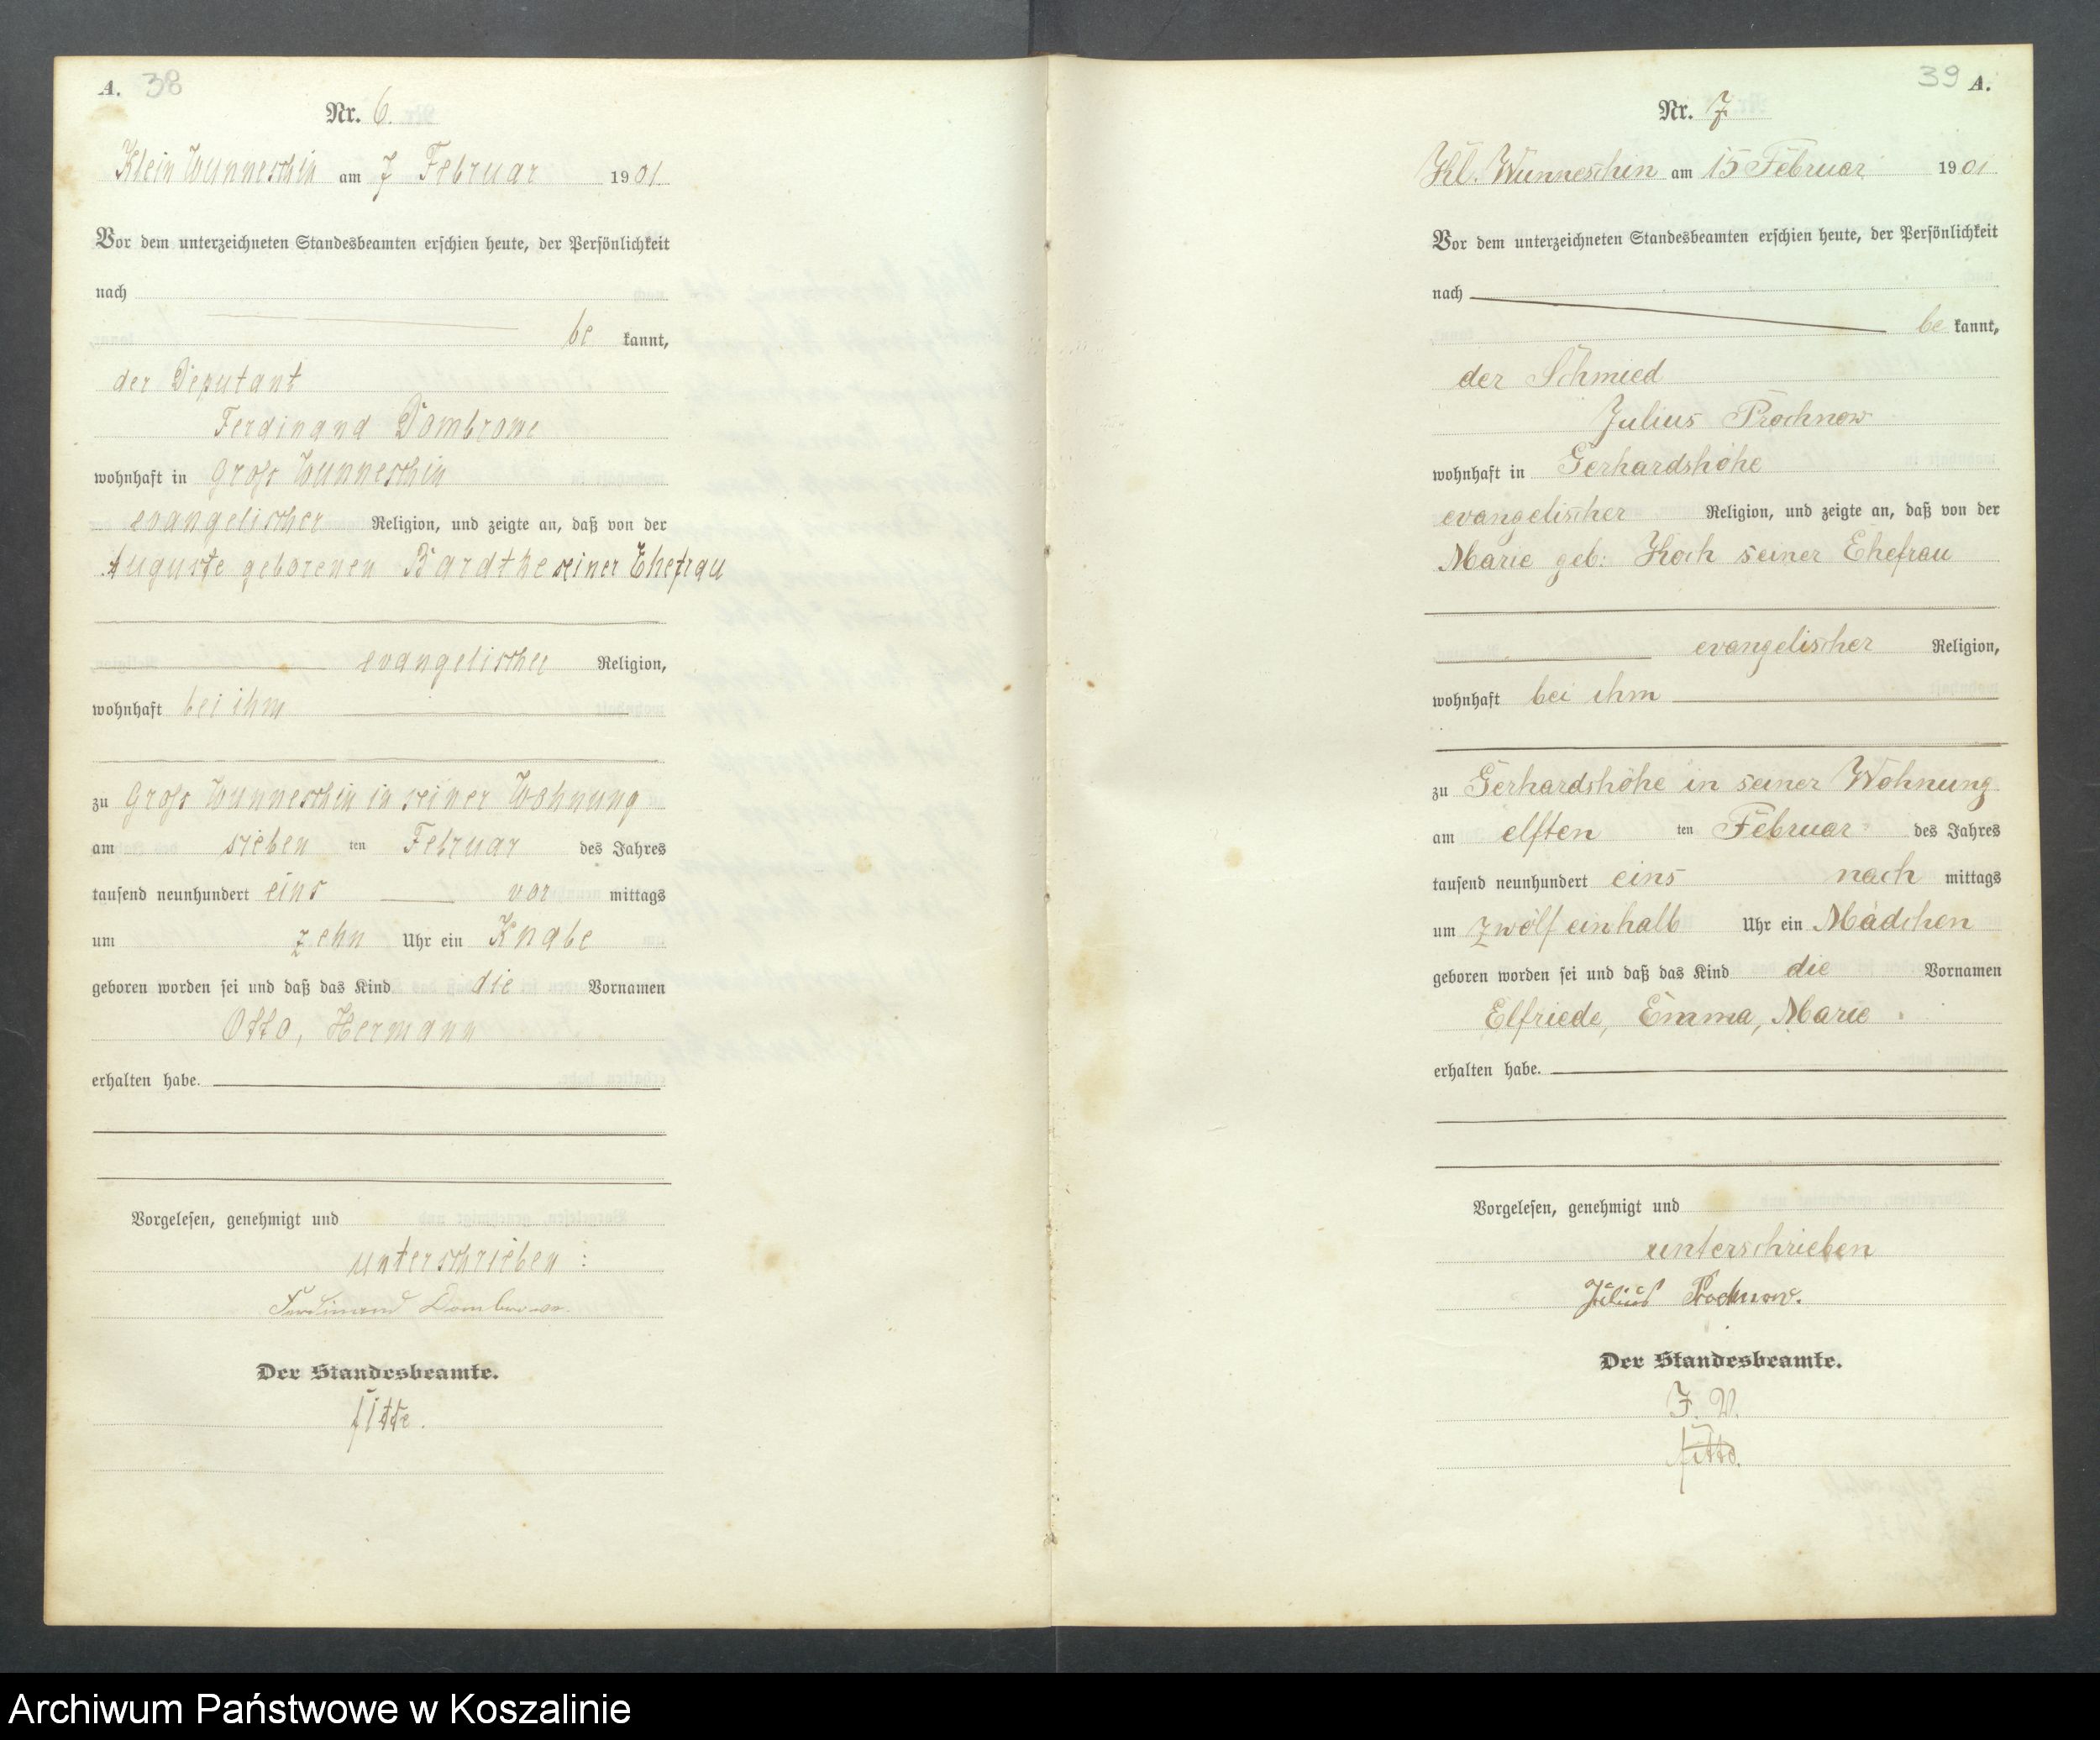 A. 38
Nr. 6.
Klein Wunneschin am 7 Februar 1901.
Vor dem unterzeichneten Standesbeamten erschien heute, der Persönlichkeit
nach
be kannt,
der Deputant
Ferdinand Dombrowe
wohnhaft in Gross Wunneschin
evangelischer Religion, und zeigte an, daß von der
Auguste geborenen Bardtke seiner Ehefrau
evangelischer Religion,
wohnhaft bei ihm
zu Gross Wunneschin in seiner Wohnung
am sieben ten Februar des Jahres
tausend neunhundert eins vor mittags
um zehn Uhr ein Knabe
geboren worden sei und daß das Kind die Vornamen
Otto, Hermann
erhalten habe.
Vorgelesen, genehmigt und
unterschrieben :
Ferdinand Dombrowe.
Der Standesbeamte.
39 A.
Nr. 7
Kl. Wunneschin am 15 Februar 1901
Vor dem unterzeichneten Standesbeamten erschien heute, der Persönlichkeit
nach
be kannt,
der Schmied
Julius Prochnow
wohnhaft in Gerhardshöhe
evangelischer Religion, und zeigte an, daß von der
Marie geb: Koch seiner Ehefrau
evangelischer Religion,
wohnhaft bei ihm
zu Gerhardshöhe in seiner Wohnung
am elften ten Februar des Jahres
tausend neunhundert eins nach mittags
um zwölf einhalb Uhr ein Mädchen
geboren worden sei und daß das Kind die Vornamen
Elfriede, Emma, Marie
erhalten habe.
Vorgelesen, genehmigt und
unterschrieben
Julius Prochnow.
Der Standesbeamte.
J. V.
Archiwum Państwowe w Koszalinie